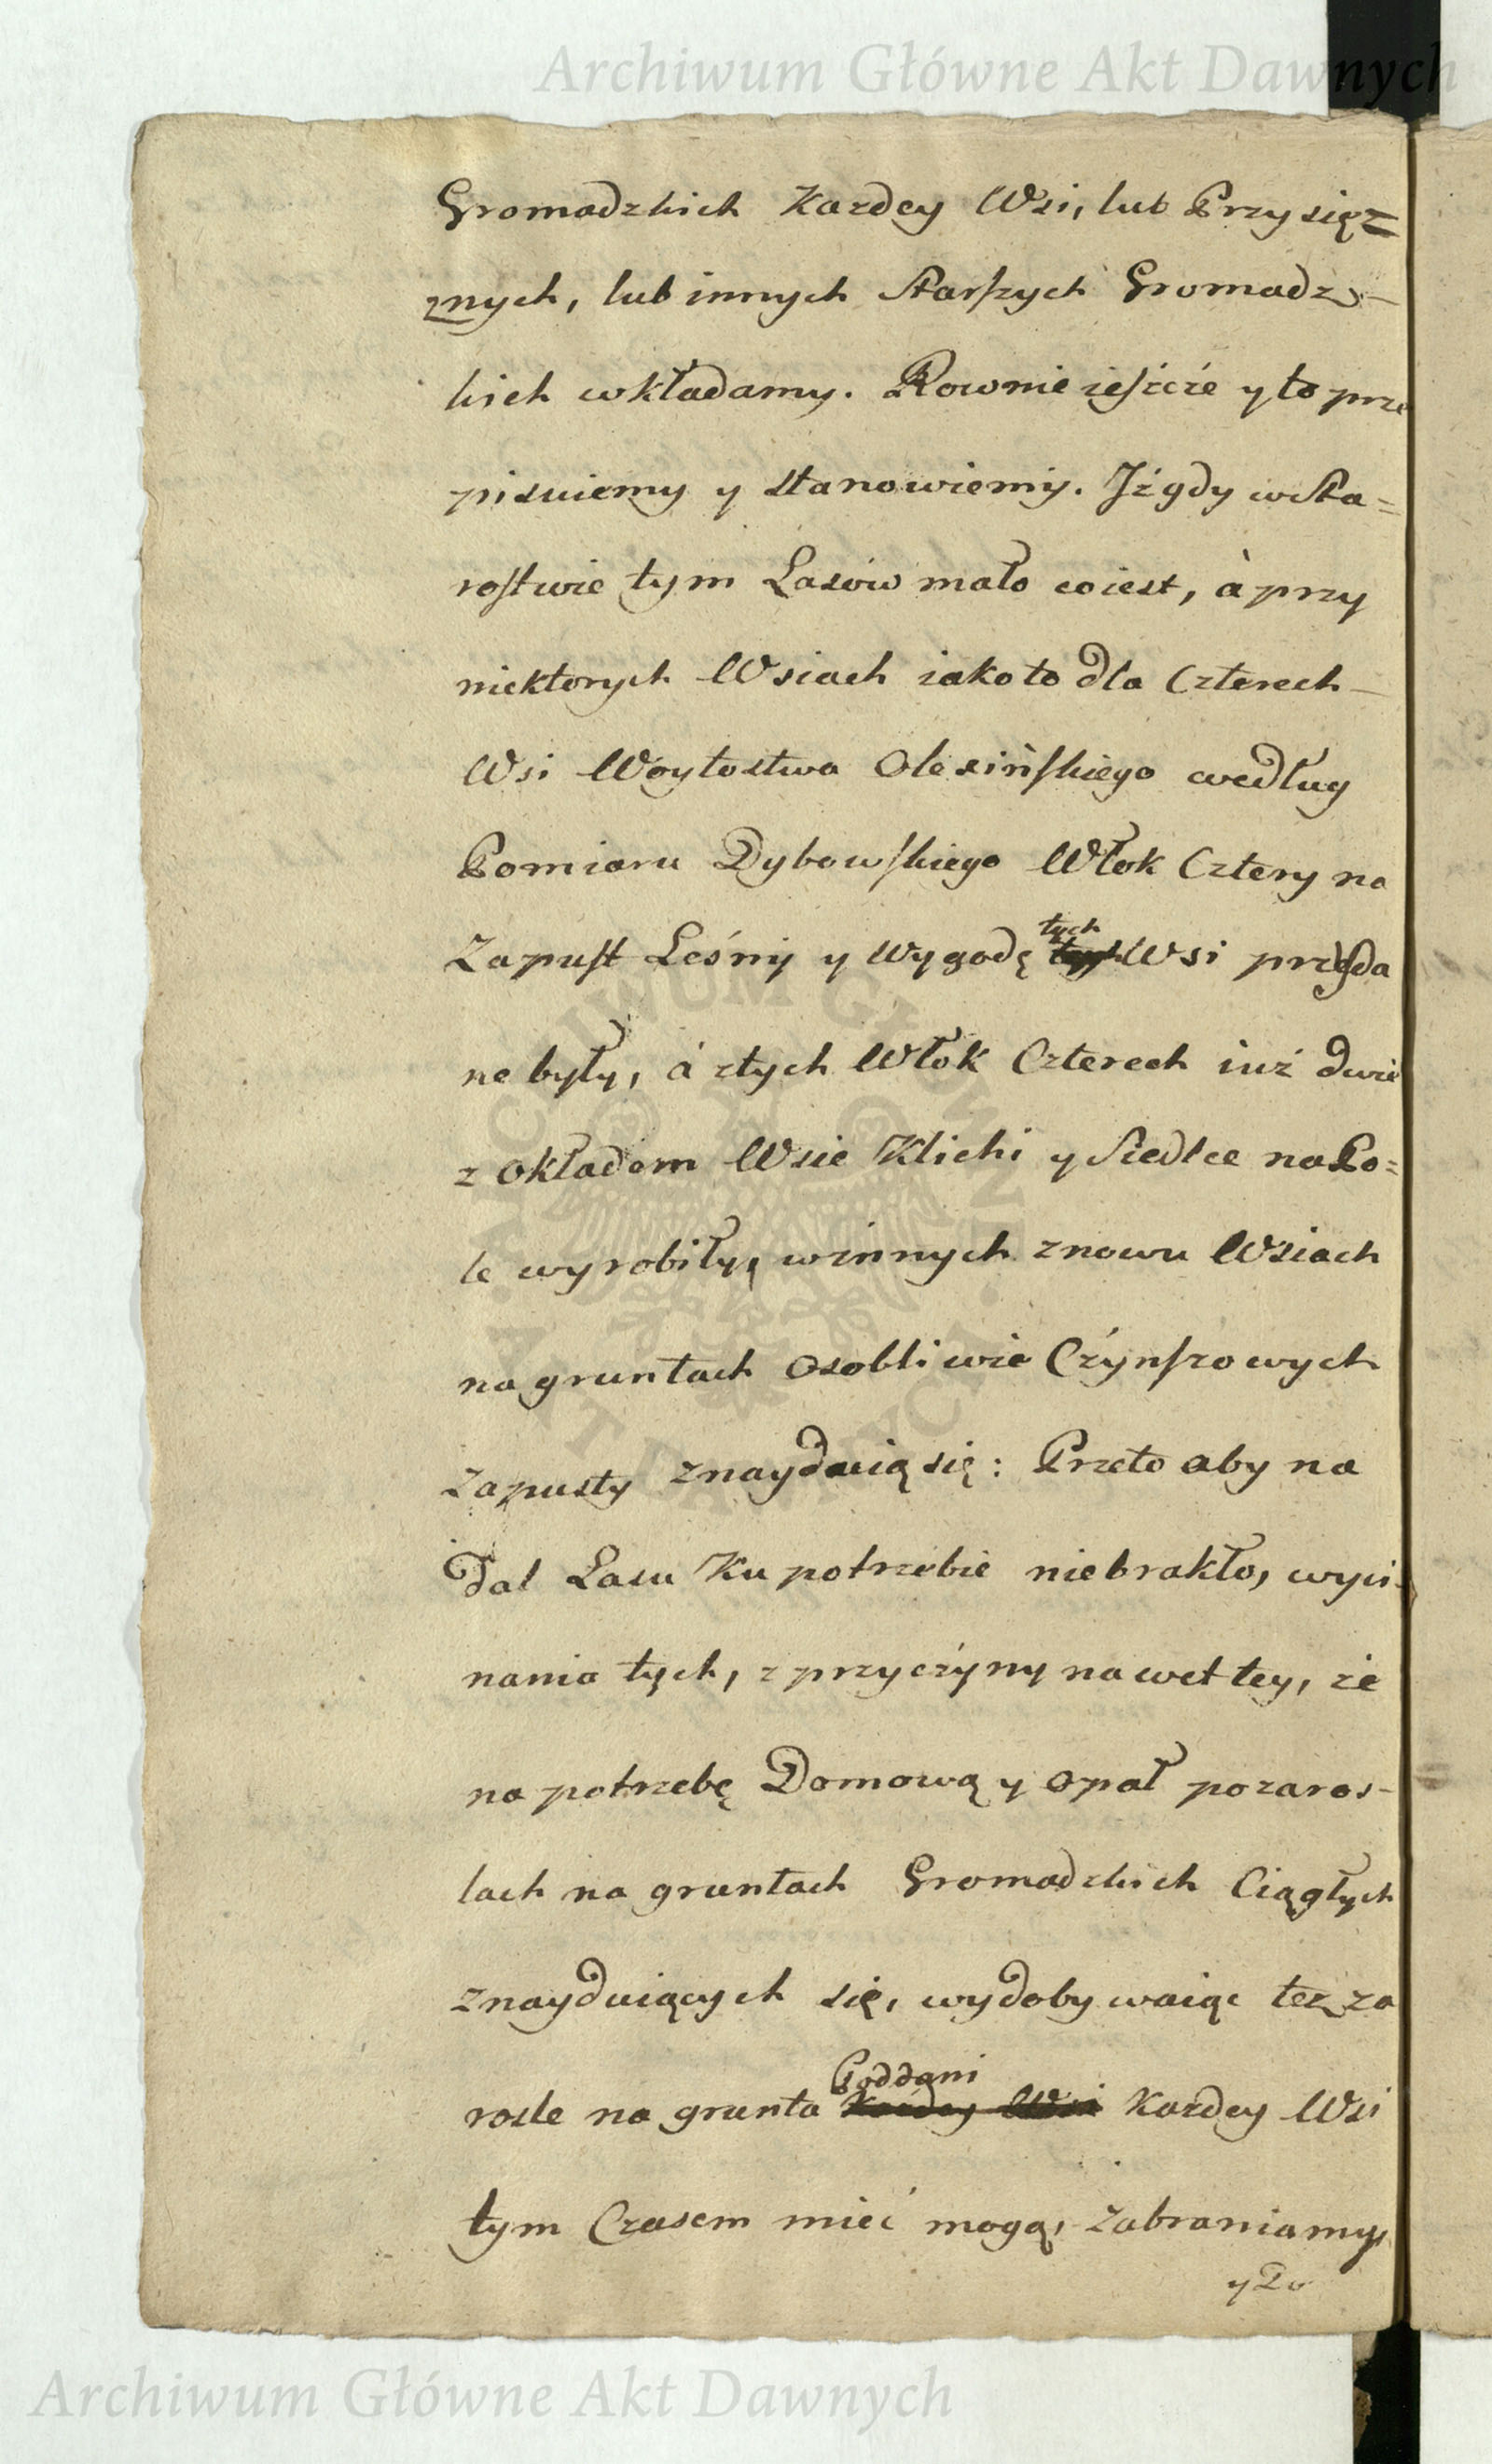 Archiwum Główne Akt Dawnych
Gromadzkich Kazdey Wsi, lub Przysięz=
znych, lub innych starszych Gromadz-
kich wkładamy. Rownie ieszcze y to prze
pisuiemy y stanowiemy. Jż gdy w sta=
rostwie tym Lasów mało co iest, à przy
niektorych Wsiach iako to dla Czterech
Wsi Woytostwa Olesińskiego według
Pomiaru Dybowskiego Włok Cztery na
tych
Zapust Leśny y wygodę Wsi przyda
ne były, à z tych Włok Czterech iuż dwie
z okładem Wsie Klichi y Siedlce na Po=
le wyrobiły, w innych znowu Wsiach
na gruntach osobliwie Czynszowych
zapusty znayduią się: Przeto aby na
Dal Lasu Ku potrzebie niebrakło, wyci-
nania tych, z przyczyny nawet tey, że
na potrzebę Domową y opał po zaros-
lach na gruntach Gromadzkich Ciągłych
znayduiących się, wydobywaiąc tez za
Poddani
rosle na grunta Kazdey Wsi Kazdey Wsi
tym Czasem mieć mogą, zabraniamy,
y Do
ARCHIWUM GŁÓWNE AKT DAWNYCH
Archiwum Główne Akt Dawnych